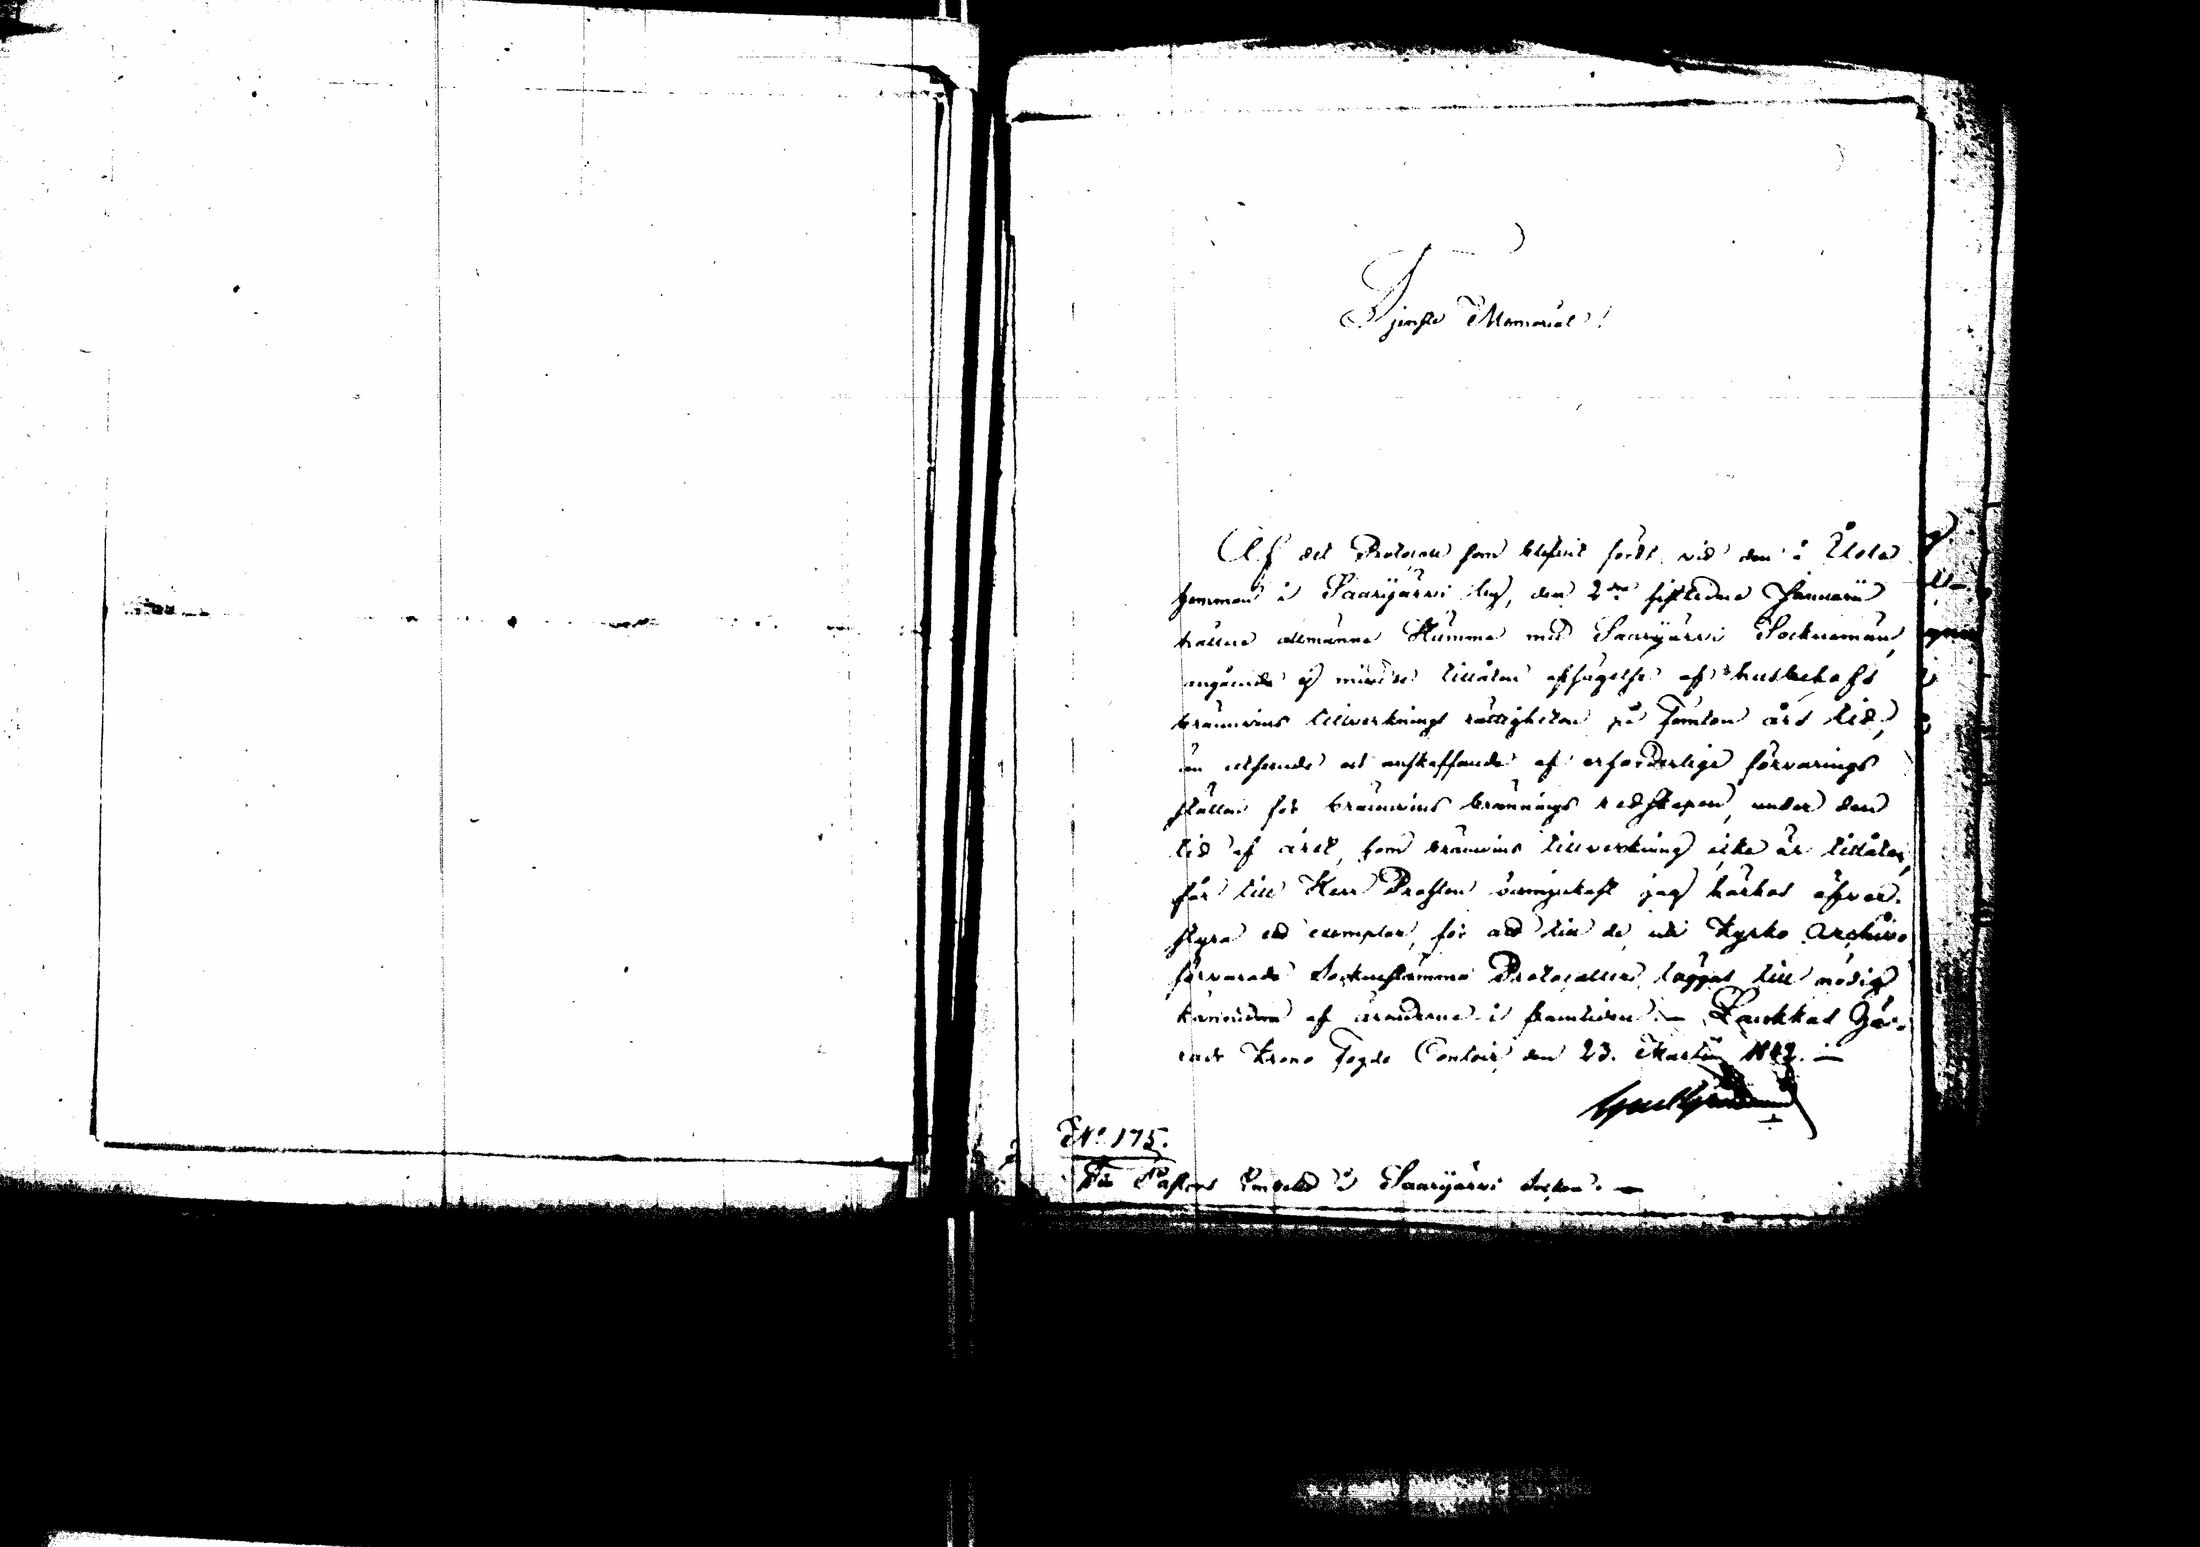 Tjenste Memorial!
Af det Protocoll som blifvit fördt vid den å Ulola
hemman i Saarijärvi by, den 2dre sistledne Januarii
hållne allmänna Stämma med Saarijärvi Socknemän,
angående ej mindre tillåten afsägelse af husbehofs
bränvins tillverknings rättigheten på Femton års tid,
än utseende och anskaffande af erforderlige förvarings
ställen för bränvins brännings redskapen, under den
tid af året, som bränvins tillverkning icke är tillåten,
får till Herr Prosten ödmjukast jag härhos öfver-
styra ett exemplar, för att till de, uti Kyrko Archivo
förvarade Sockenstämmo Protocoller läggas till nödig
kännedom af ärenderne i framtiden. — Laukkas Hä-
rads Krono Fogde Contoir, den 23. Martii 1842. —
No 175.
Till Pastors Embetet i Saarijärvi Socken. —